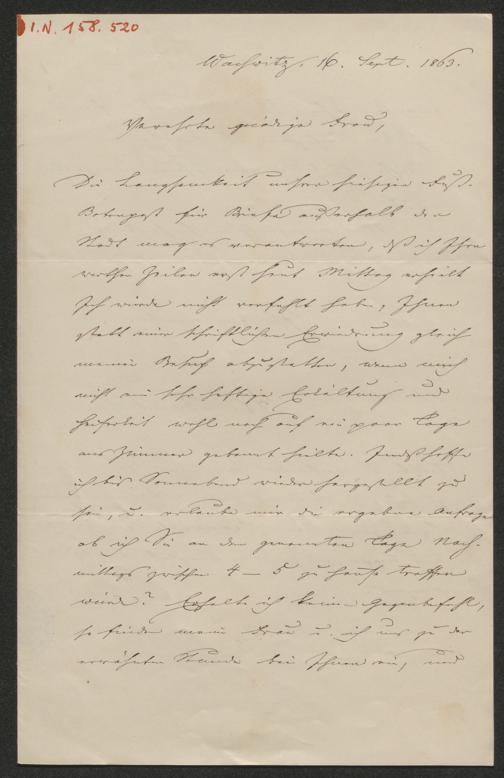 I.N. 158.520
Wachwitz, 16. Sept. 1863.
Verehrte gnädige Frau,
Die Langsamkeit unsrer hiesigen Fuß-
Botenpost für Briefe außerhalb der
Stadt mag es verantworten, daß ich Ihre
werthen Zeilen erst heut Mittag erhielt
Ich würde nicht verfehlt haben, Ihnen
statt einer schriftlichen Erwiederung gleich
meinen Besuch abzustatten, wenn mich
nicht eine sehr heftige Erkältung und
Heiserkeit wohl noch auf ein paar Tage
ans Zimmer gebannt hielte. Indeß hoffe
ich bis Sonnabend wieder hergestellt zu
sein, u. erlaube mir die ergebene Anfrage
ob ich Sie an dem genannten Tage Nach-
mittags zwischen 4 – 5 zu Hause treffen
würde? Erhalte ich keinen Gegenbefehl,
so finden meine Frau u. ich uns zu der
erwähnten Stunde bei Ihnen ein, und